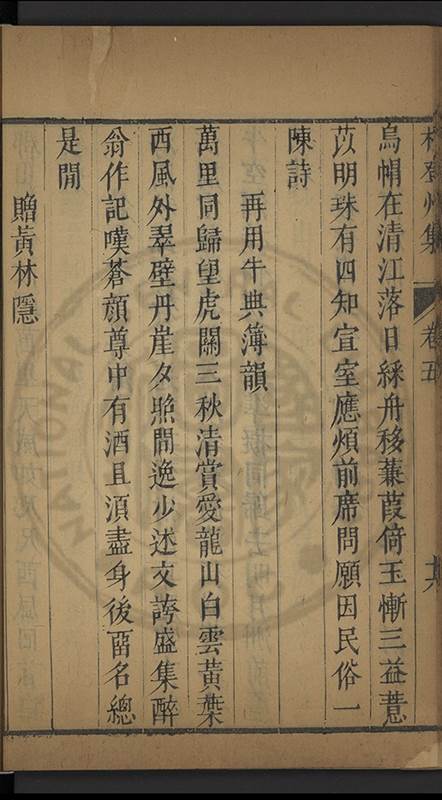 登州集 卷五 六
烏帽在清江落日綵舟移蒹葭倚玉慚三益薏
苡明珠有四知宣室應煩前席問願因民俗一
陳詩
再用牛典簿韻
萬里同歸望虎關三秋清賞愛龍山白雲黃葉
西風外翠壁丹崖夕照間逸少述文誇盛集醉
翁作記嘆蒼顏尊中有酒且須盡身後畱名總
是閒
贈黃林隱